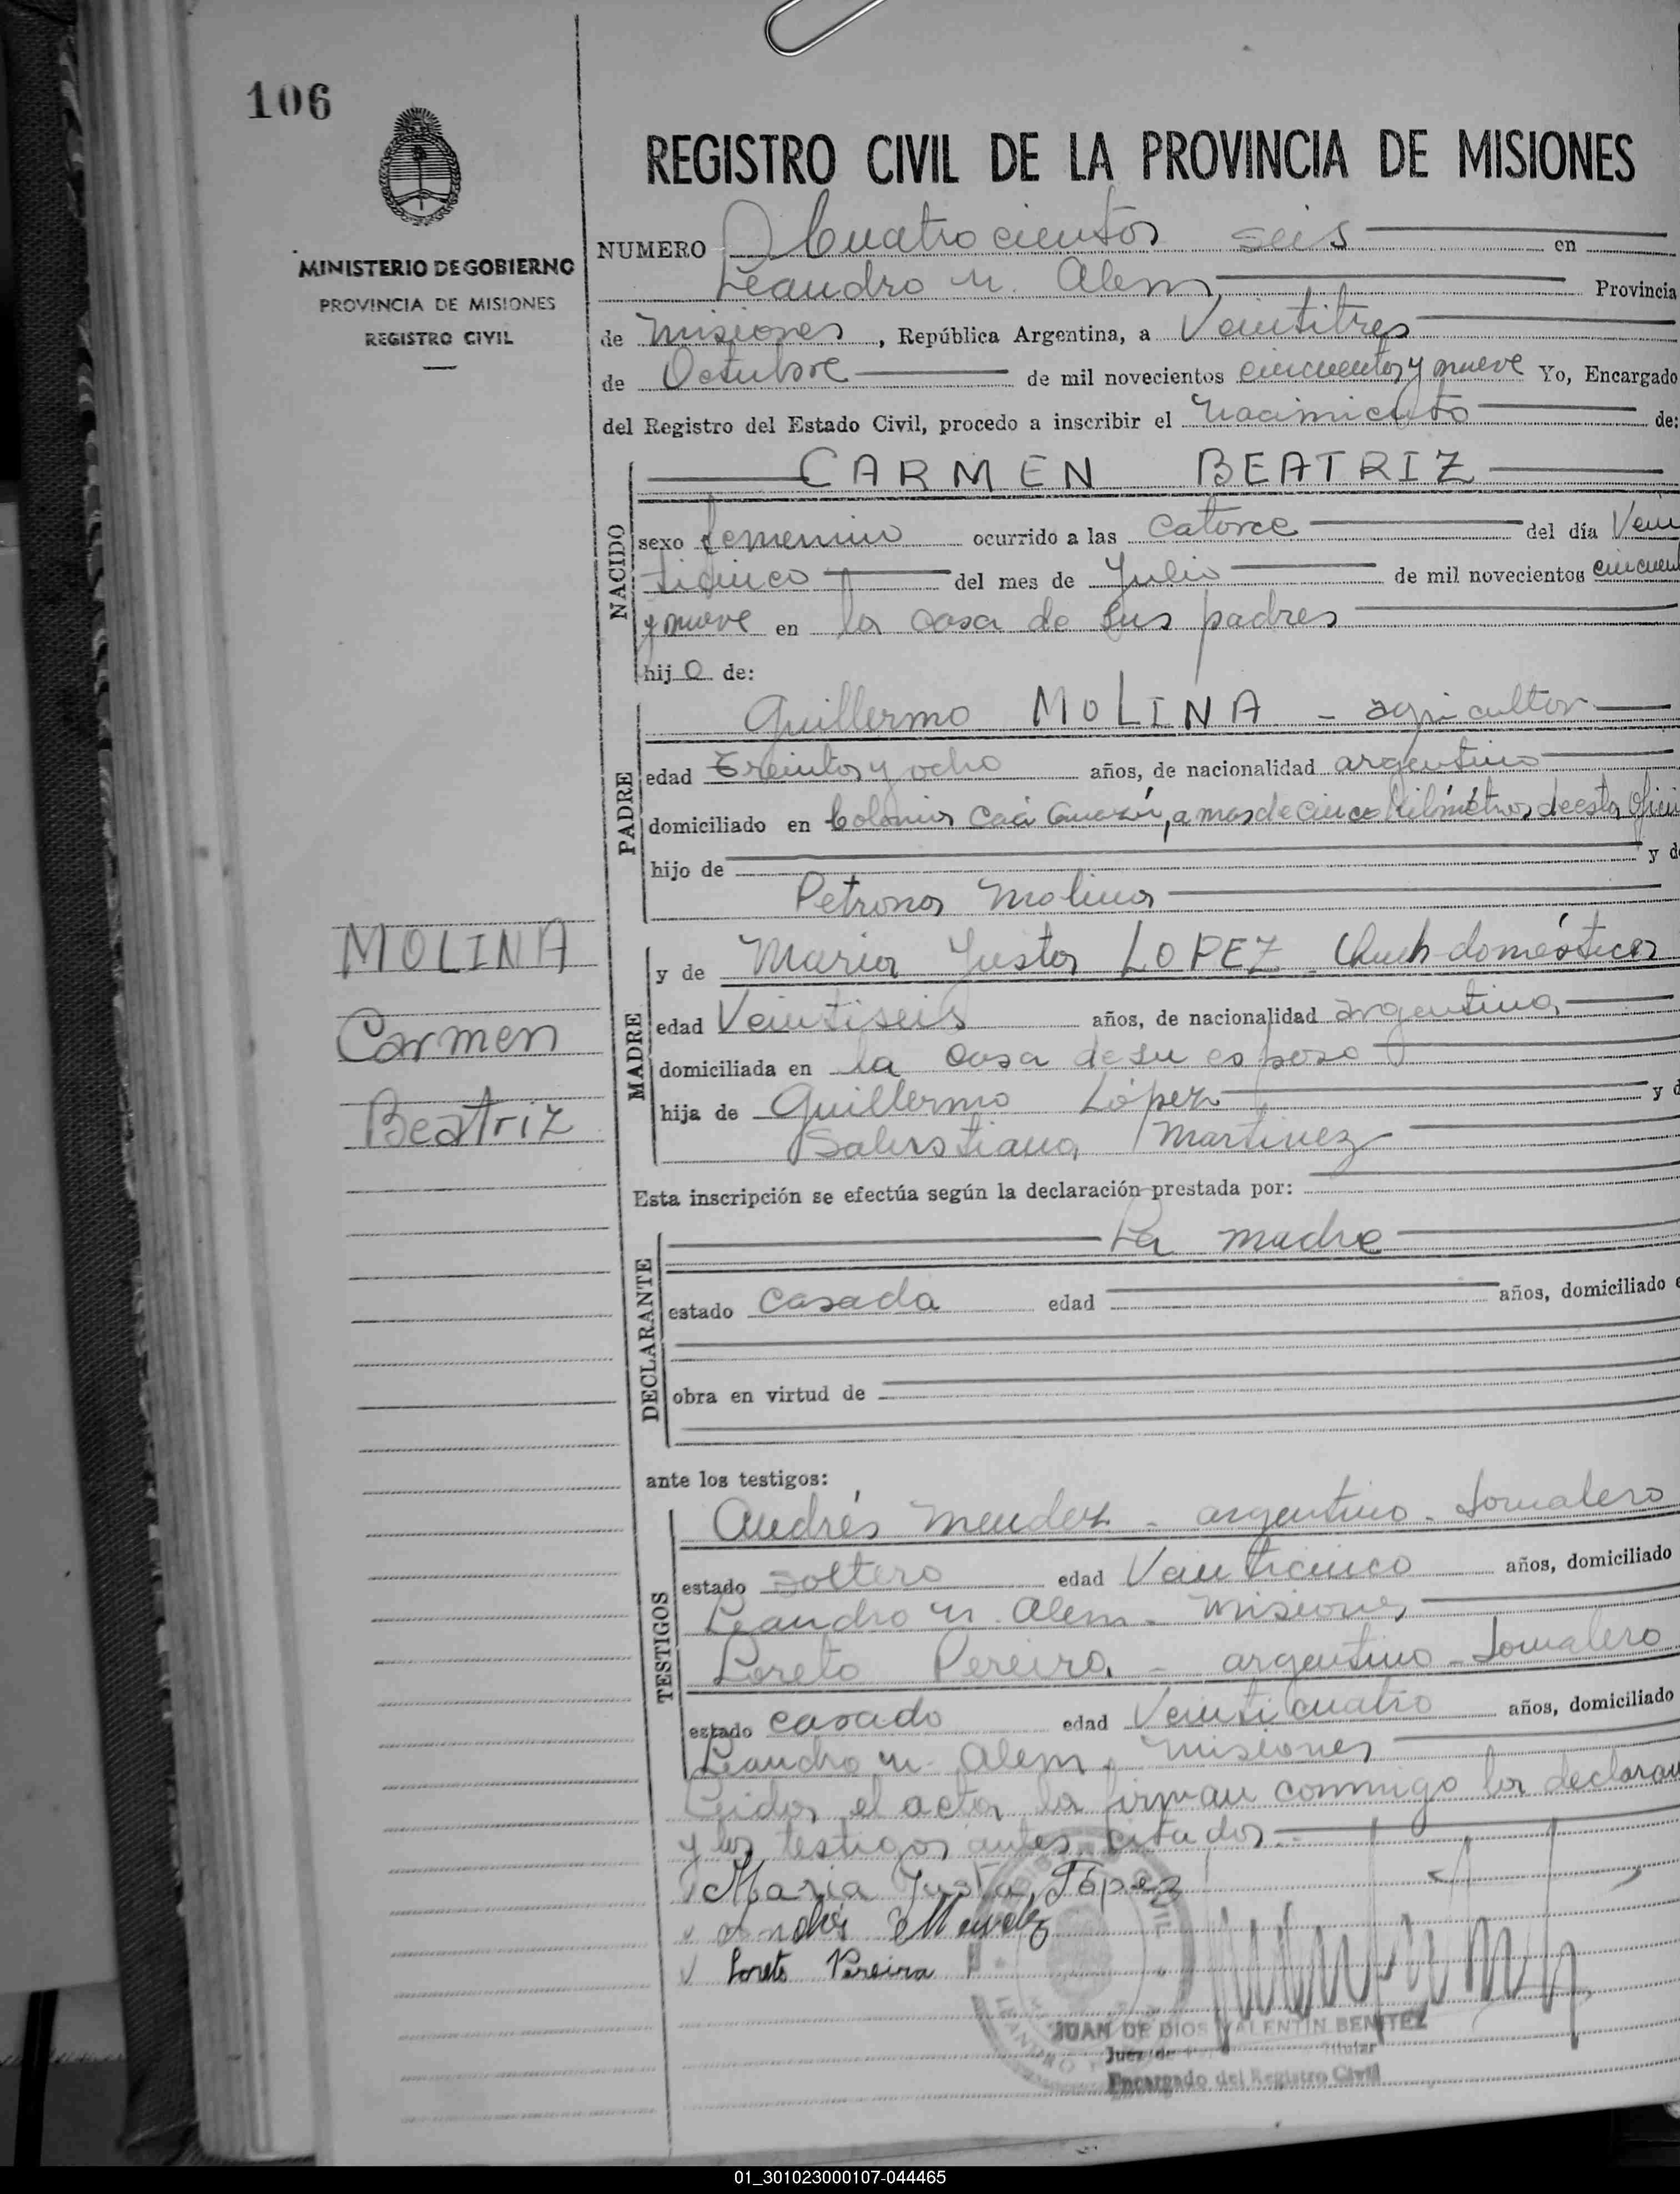 106
REGISTRO CIVIL DE LA PROVINCIA DE MISIONES
MINISTERIO DE GOBIERNO
PROVINCIA DE MISIONES
REGISTRO CIVIL
NUMERO Cuatrocientos seis en
Leandro N. Alem Provincia
de Misiones, República Argentina, a Veintitres
de Octubre de mil novecientos cincuenta y nueve Yo, Encargado
del Registro del Estado Civil, procedo a inscribir el Nacimiento de:
NACIDO
CARMEN BEATRIZ
sexo femenino ocurrido a las Catorce del día Vein
ticinco del mes de Julio de mil novecientos cincuen
y nueve en la casa de sus padres
hija de:
PADRE
Guillermo MOLINA - agricultor
edad Treinta y ocho años, de nacionalidad argentino
domiciliado en Colonia Caá Guazú, a mas de cinco kilómetros de esta Ofici
hijo de y d
Petrona Molina
MOLINA
Carmen
Beatriz
MADRE
y de Maria Justa LOPEZ doméstica
edad Veintiseis años, de nacionalidad argentina
domiciliada en la casa de su esposo
hija de Guillermo López y d
Salustiana Martinez
Esta inscripción se efectúa según la declaración prestada por:
DECLARANTE
La madre
estado casada edad años, domiciliado e
obra en virtud de
ante los testigos:
TESTIGOS
Andrés Mendez - argentino - Jornalero
estado soltero edad Veinticinco años, domiciliado
Leandro N. Alem - Misiones
Loreto Pereira - argentino - Jornalero
estado casado edad Veinticuatro años, domiciliado
Leandro N. Alem - Misiones
Leida el acta la firman conmigo la declaran
y los testigos antes citados.
Maria Justa López
Andrés Mendez
Loreto Pereira
JUAN DE DIOS VALENTIN BENITEZ
Juez de Titular
Encargado del Registro Civil
01_301023000107-044465